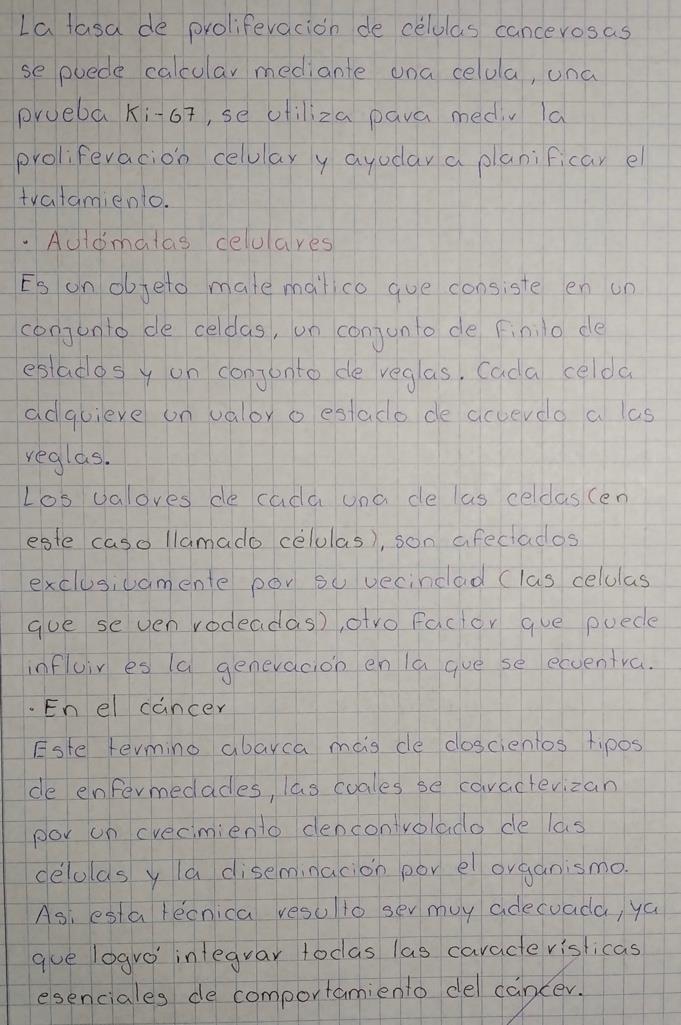 La tasa de proliferación de células cancerosas
se puede calcular mediante una celula, una
prueba Ki-67, se utiliza para medir la
proliferación celular y ayudar a planificar el
tratamiento.
· Autómatas celulares
Es un objeto matemático que consiste en un
conjunto de celdas, un conjunto de finito de
estados y un conjunto de reglas. Cada celda
adquiere un valor o estado de acuerdo a las
reglas.
Los valores de cada una de las celdas (en
este caso llamado células), son afectados
exclusivamente por su vecindad (las celulas
que se ven rodeadas), otro factor que puede
influir es la generación en la que se ecuentra.
· En el cáncer
Este termino abarca más de doscientos tipos
de enfermedades, las cuales se caracterizan
por un crecimiento dencontrolado de las
células y la diseminación por el organismo.
Asi esta técnica resulto ser muy adecuada, ya
que logró integrar todas las características
esenciales de comportamiento del cáncer.